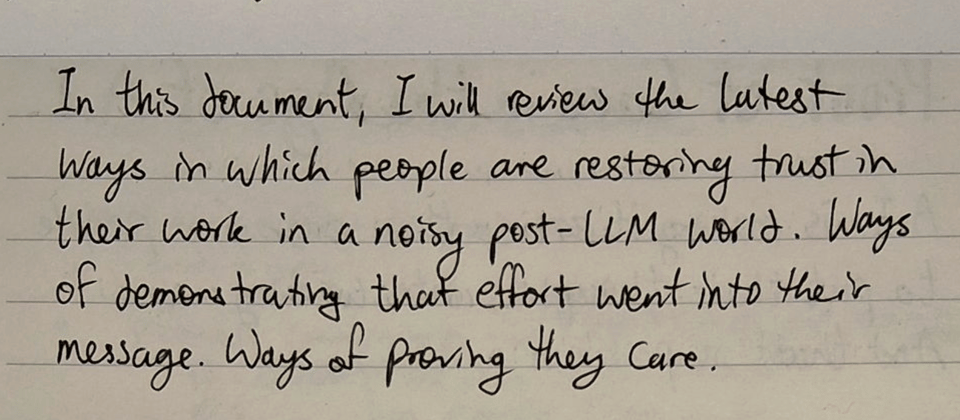 In this document, I will review the latest
ways in which people are restoring trust in
their work in a noisy post-LLM world. Ways
of demonstrating that effort went into their
message. Ways of proving they care.